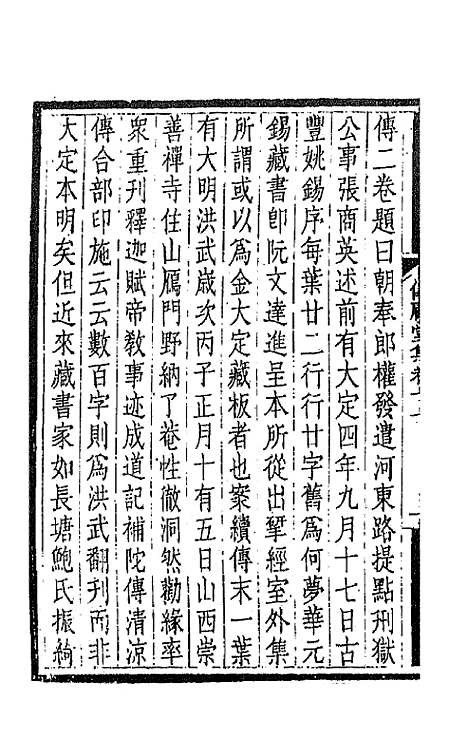 傳二卷題曰朝奉郎權發遣河東路提點刑獄
公事張商英述前有大定四年九月十七日古
豐姚錫序每葉廿二行行廿字舊為何夢華元
錫藏書卽阮文達進呈本所從出揅經室外集
所謂或以為金大定藏板者也案續傳末一葉
有大明洪武嵗次丙子正月十有五日山西崇
善禪寺住山鴈門野納了菴性徹洞然勸緣率
衆重刊釋迦賦帝敎事迹成道記補陀傳清凉
傳合部印施云云數百字則為洪武翻刋而非
大定本明矣但近來藏書家如長塘鮑氏振綺